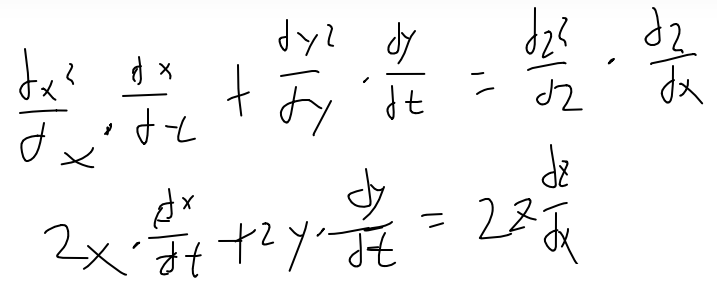 \frac{dx^2}{dx} \cdot \frac{dx}{dt} + \frac{dy^2}{dy} \cdot \frac{dy}{dt} = \frac{dz^2}{dz} \cdot \frac{dz}{dx}
2x \cdot \frac{dx}{dt} + 2y \cdot \frac{dy}{dt} = 2z \frac{dz}{dx}